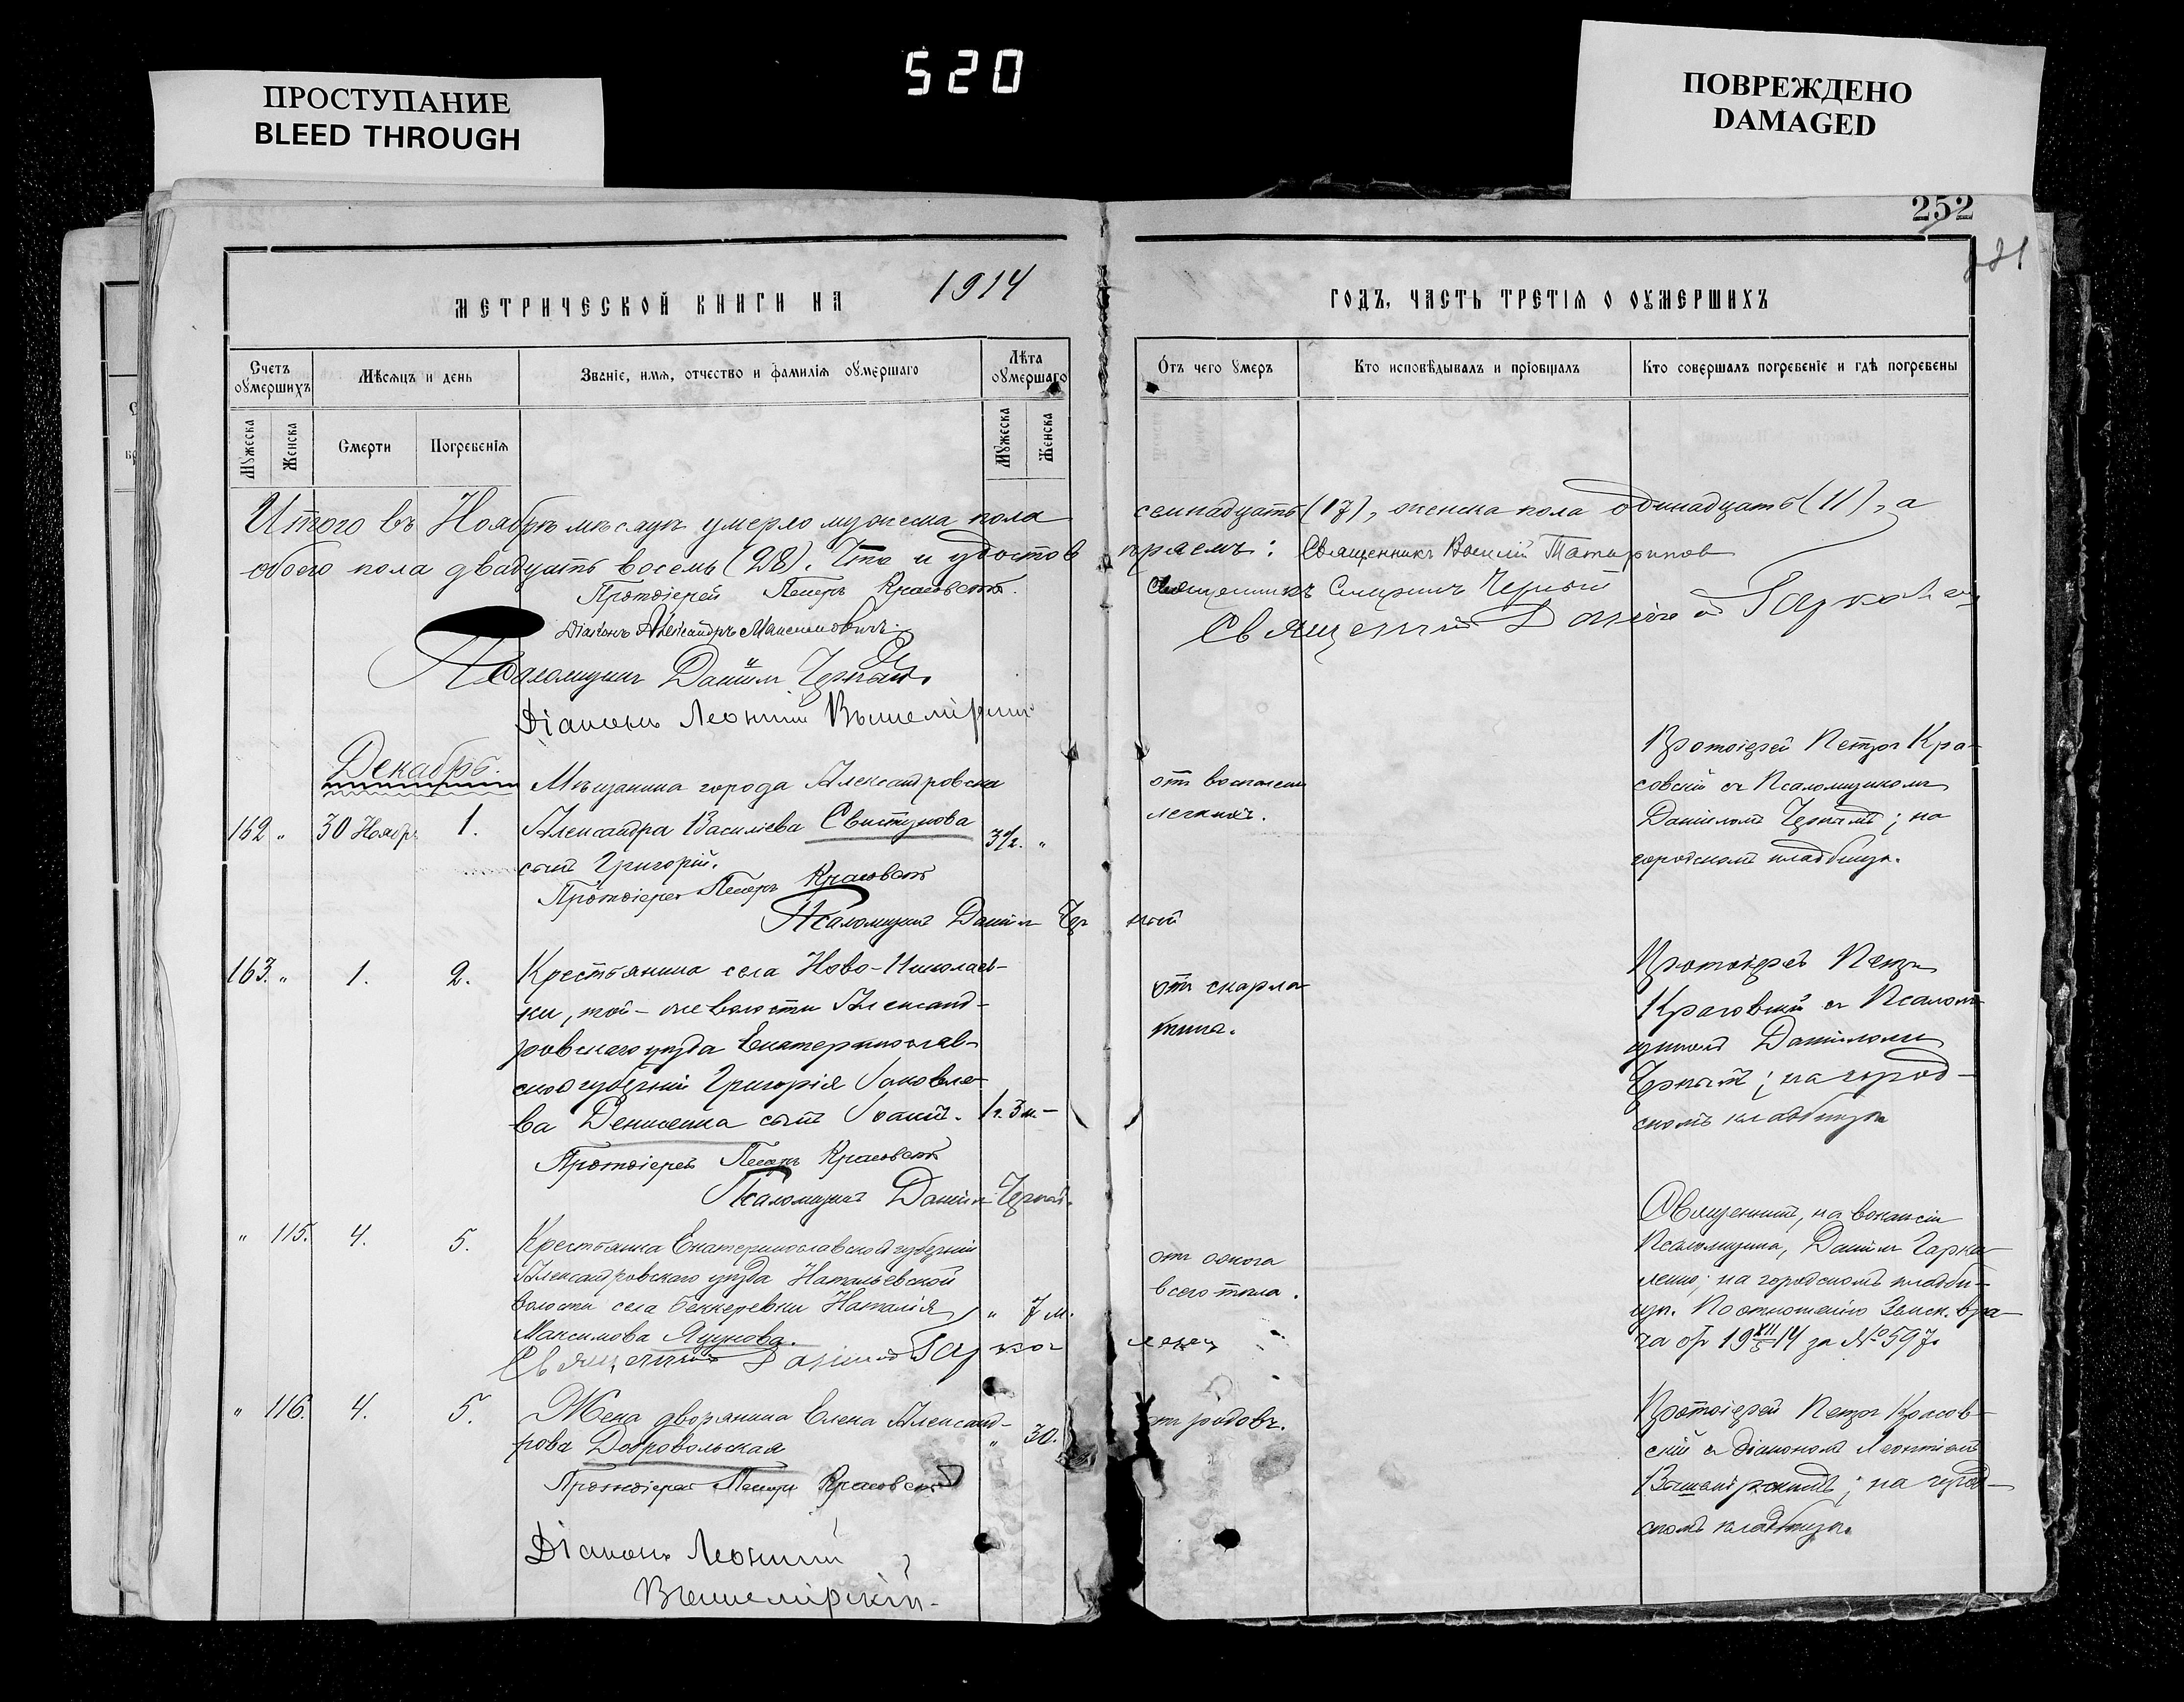 520
ПРОСТУПАНИЕ
BLEED THROUGH
ПОВРЕЖДЕНО
DAMAGED
252
МЕТРИЧЕСКОЙ КНИГИ НА 1914
ГОДЪ, ЧАСТЬ ТРЕТІѦ О ОУМЕРШИХЪ
Счетъ оумершихъ
Мѣсѧцъ и день
Званіе, имѧ, отчество и фамиліѧ оумершаго
Лѣта оумершаго
Отъ чего умеръ
Кто исповѣдывалъ и пріобщалъ
Кто совершалъ погребеніе и гдѣ погребены
Мужеска
Женска
Смерти
Погребеніѧ
Мужеска
Женска
Итого въ Ноябрѣ мѣсяцѣ умерло мужеска пола семнадцать (17), женска пола одинадцать (11), а
обоего пола двадцать восемь (28). Что и удостовѣряемъ: Священникъ Василій
Протоіерей Петръ Красовскій.
Священникъ Черный
Діаконъ Александръ Максимовичъ.
Священникъ Даніилъ
Псаломщикъ Даніилъ Черный.
Діаконъ Леонтій Вышемірскій
Декабрь.
162 " 30 Ноябр. 1.
Мѣщанина города Александровска
Александра Василіева Свистунова
сынъ Григорій.
3 1/2. "
Протоіерей Петръ Красовскій
Псаломщикъ Даніилъ Черный
отъ воспаленія
легкихъ.
Протоіерей Петръ Кра-
совскій съ Псаломщикомъ
Даніиломъ Чернымъ; на
городскомъ кладбищѣ.
163. " 1. 2.
Крестьянина села Ново-Николаев-
ки, той-же волости Александ-
ровскаго уѣзда Екатеринослав-
ской губерніи Григорія Іаковле-
ва Денисенка сынъ Іоаннъ.
1 г. 3 м. -
Протоіерей Петръ Красовскій
Псаломщикъ Даніилъ Черный.
отъ скарла-
тина.
Протоіерей Петръ
Красовскій съ Псалом-
щикомъ Даніиломъ
Чернымъ; на город-
скомъ кладбищѣ
" 115. 4. 5.
Крестьянка Екатеринославской губерніи
Александровскаго уѣзда Натальевской
волости села Беккеревки Наталія
Максимова Яцунова.
" 7 м.
Священникъ Даніилъ
отъ ожога
всего тѣла.
Священникъ, на вакансіи
Псаломщика, Даніилъ Гарку-
ленко; на городскомъ кладби-
щѣ. По отношенію Земск. вра-
ча отъ 19 XII/5 14 за № 597.
" 116. 4. 5.
Жена дворянина Елена Александ-
рова Добровольская
" 30.
Протоіерей Петръ Красовскій
Діаконъ Леонтій
Вышемірскій.
отъ родовъ.
Протоіерей Петръ Красов-
скій съ діакономъ Леонтіемъ
Вышемірскимъ; на город-
скомъ кладбищѣ.